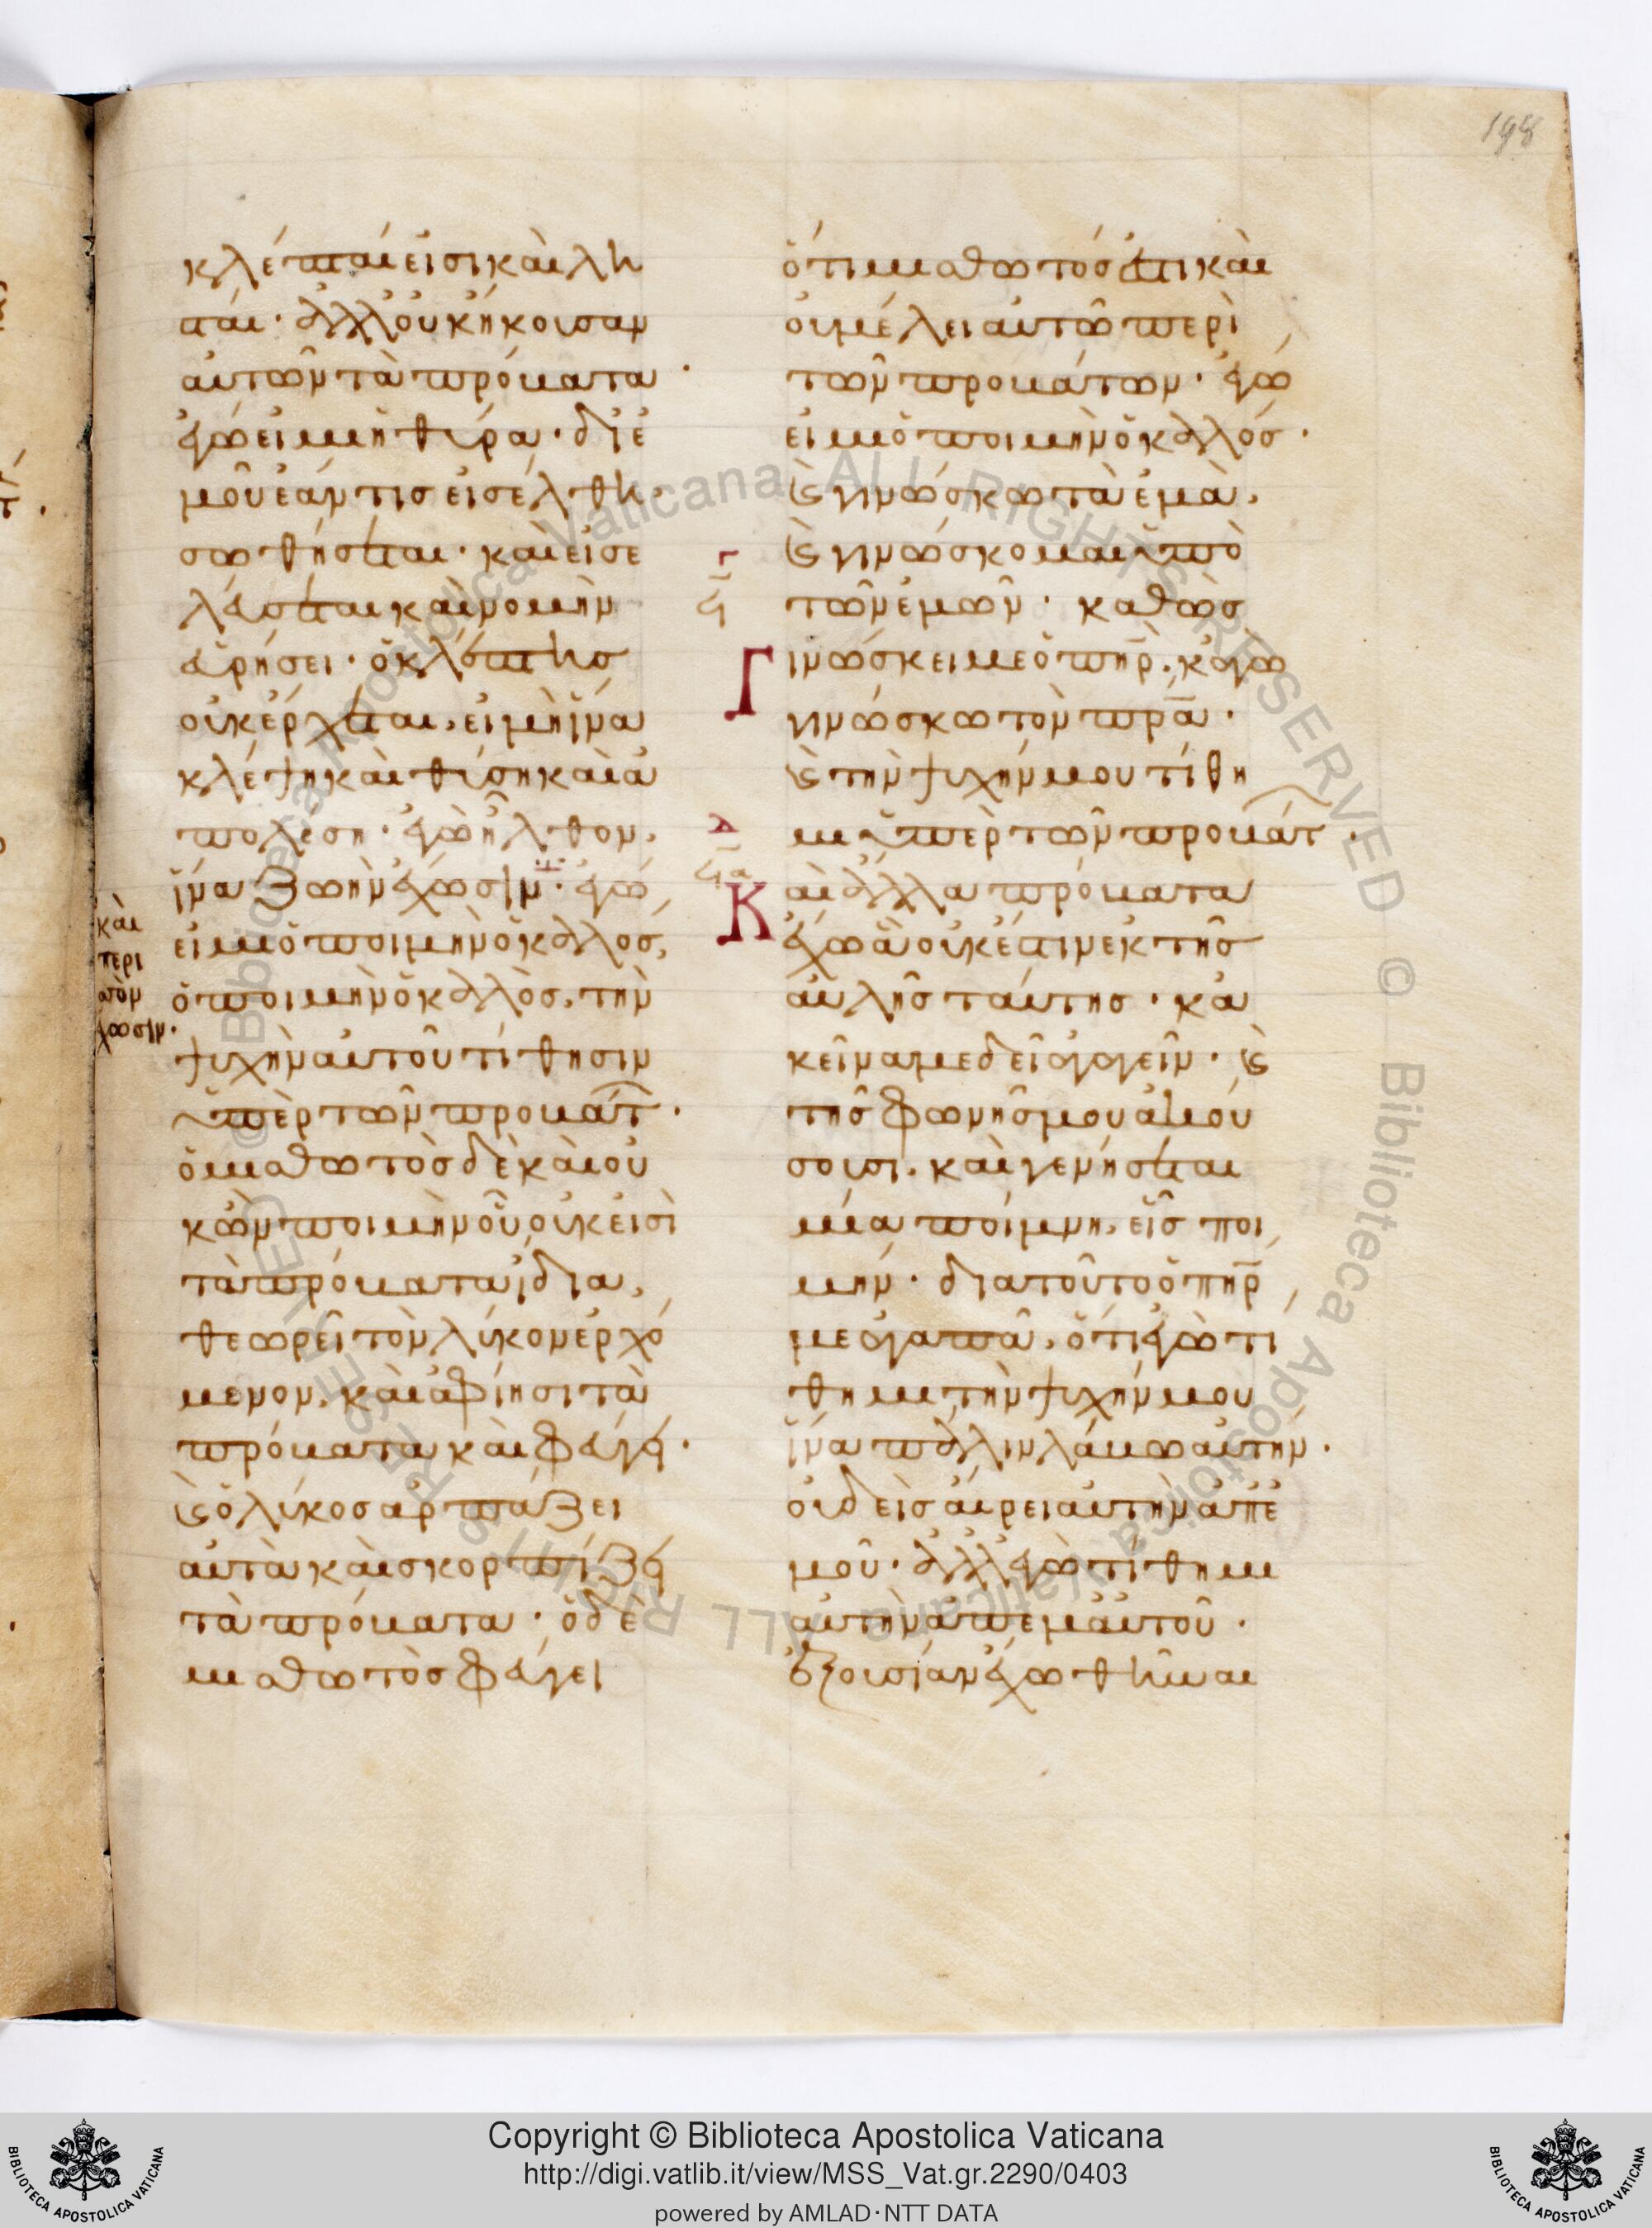 198
κλέπται εἰσὶ καὶ λη
σταί· ἀλλ' οὐκ ἤκουσαν
αὐτῶν τὰ πρόβατα·
ἐγώ εἰμι ἡ θύρα· δι' ἐ
μοῦ ἐάν τις εἰσέλθη,
σωθήσεται· καὶ εἰσε
λεύσεται καὶ νομὴν
εὑρήσει· ὁ κλέπτης
οὐκ ἔρχεται, εἰ μὴ ἵνα
κλέψη καὶ θύση καὶ ἀ
πολέση· ἐγὼ ἦλθον,
ἵνα ζωὴν ἔχωσιν· ἐγώ
εἰμι ὁ ποιμὴν ὁ καλός,
ὁ ποιμὴν ὁ καλὸς, τὴν
ψυχὴν αὐτοῦ τίθησιν
ὑπὲρ τῶν προβάτ·
ὁ μισθωτὸς δὲ καὶ οὐ
κ ὢν ποιμὴν οὗ οὐκ εἰσὶ
τὰ πρόβατα ἴδια,
θεωρεῖ τὸν λύκον ἐρχό
μενον, καὶ ἀφίησι τὰ
πρόβατα καὶ φεύγει·
ϗ ὁ λύκος ἁρπάζει
αὐτὰ καὶ σκορπίζει
τὰ πρόβατα· ὁ δὲ
μισθωτὸς φεύγει
καὶ
περι
σὸν
ἔχωσιν·
ὅτι μισθωτός ἐστι καὶ
οὐ μέλει αὐτῶ περὶ
τῶν προβάτων· ἐγώ
εἰμι ὁ ποιμὴν ὁ καλός·
ϗ γινώσκω τὰ ἐμὰ,
ϗ γινώσκομαι ὑπὸ
τῶν ἐμῶν· καθὼς
Γινώσκει με ὁ πηρ, κἀγὼ
γινώσκω τὸν πρα·
ϗ τὴν ψυχήν μου τίθη
μι ὑπὲρ τῶν προβάτ·
Καὶ ἄλλα πρόβατα
ἔχω ἃ οὐκ ἔστιν ἐκ τῆς
αὐλῆς ταύτης· κἀ
κεῖνα με δεῖ ἀγαγεῖν· ϗ
τῆς φωνῆς μου ἀκού
σουσι, καὶ γενήσεται
μία ποίμνη, εἷς ποι
μήν· διατοῦτο ὁ πηρ
με ἀγαπᾶ, ὅτι ἐγὼ τί
θημι τὴν ψυχήν μου
ἵνα πάλιν λάβω αὐτήν·
οὐδεὶς αἴρει αὐτὴν ἀπ' ἐ
μοῦ· ἀλλ' ἐγὼ τίθημι
αὐτὴν ἀπ' ἐμαυτοῦ·
ἐξουσίαν ἔχω θεῖναι
Copyright © Biblioteca Apostolica Vaticana
http://digi.vatlib.it/view/MSS_Vat.gr.2290/0403
powered by AMLAD·NTT DATA